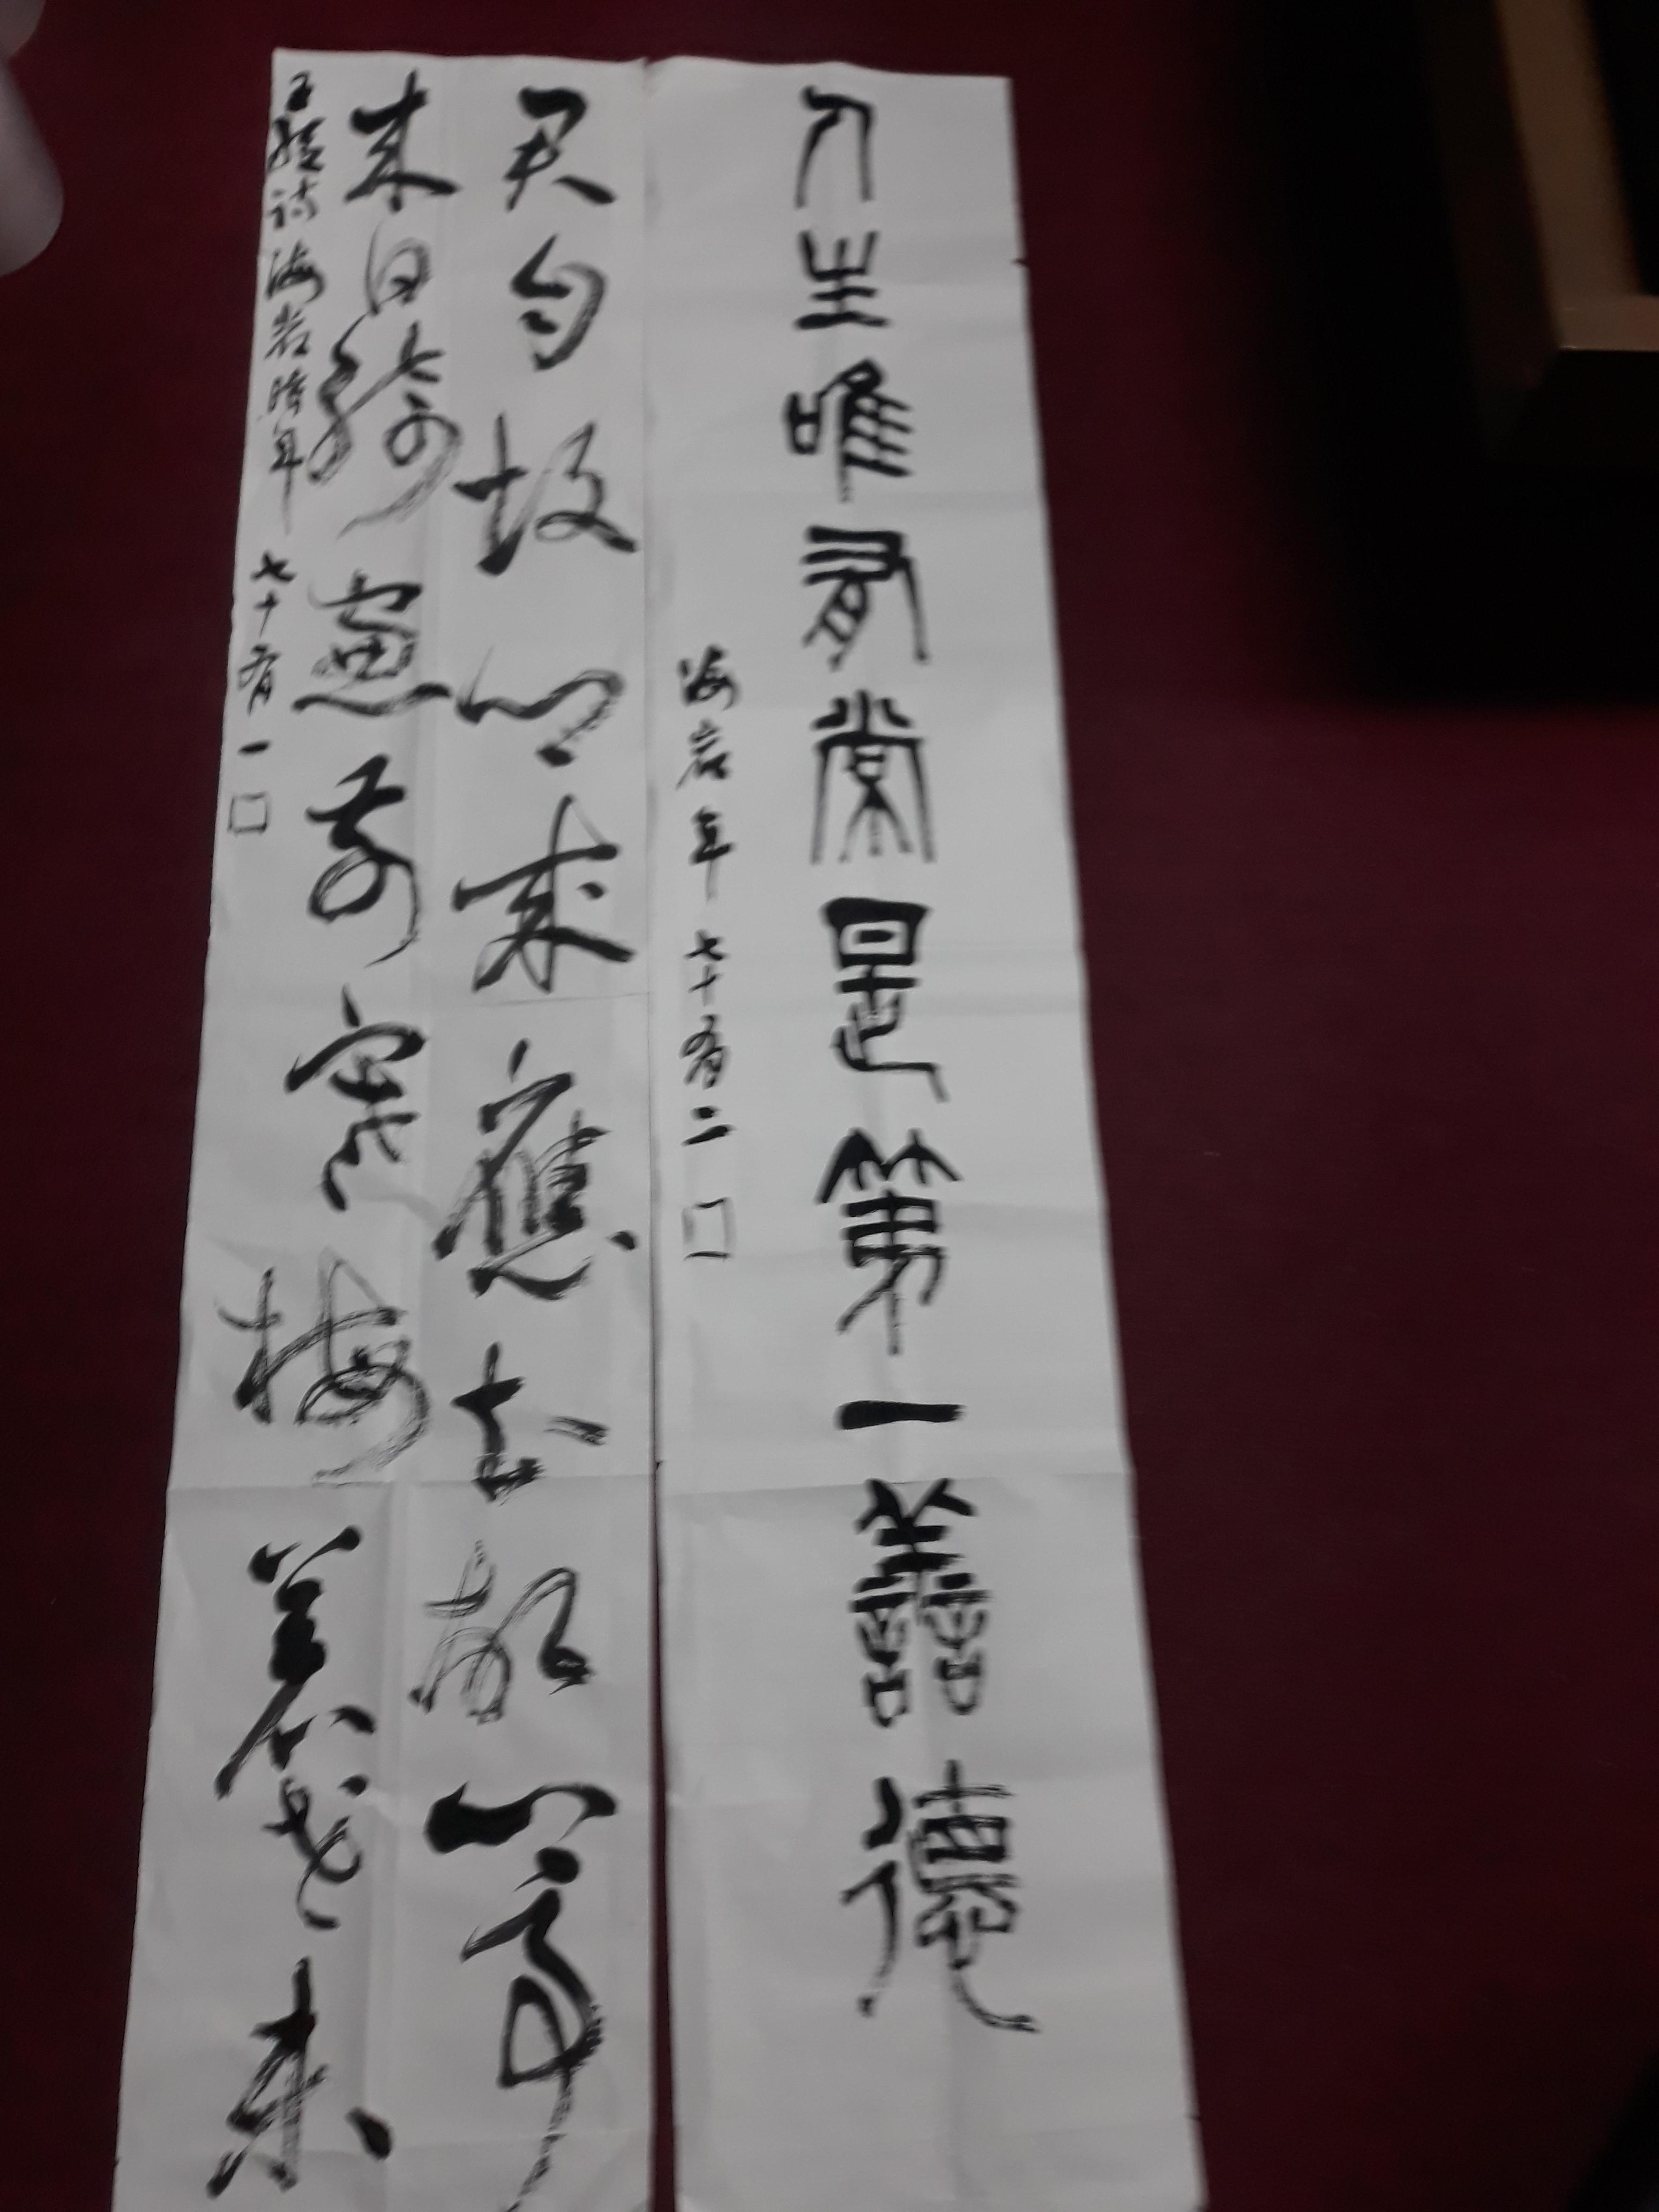 人生唯有常是第一譱德
海岩年七十有二
君自故鄉来應知故鄉事
来日綺窗前寒梅着花未
王維詩海岩時年七十有一